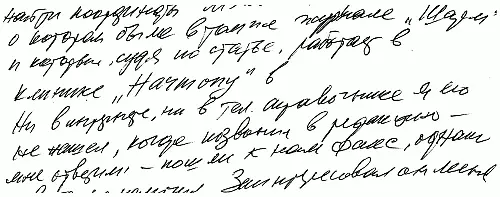 найти координаты
о котором была в журнале „Шадем"
и который, судя по статье, работает в
клинике „Начтопу" в
Ни в интернете, ни в тел. справочнике я его
не нашел, когда позвонил в редакцию –
мне ответили – пошли к нам факс, однако
Заинтересовал он меня